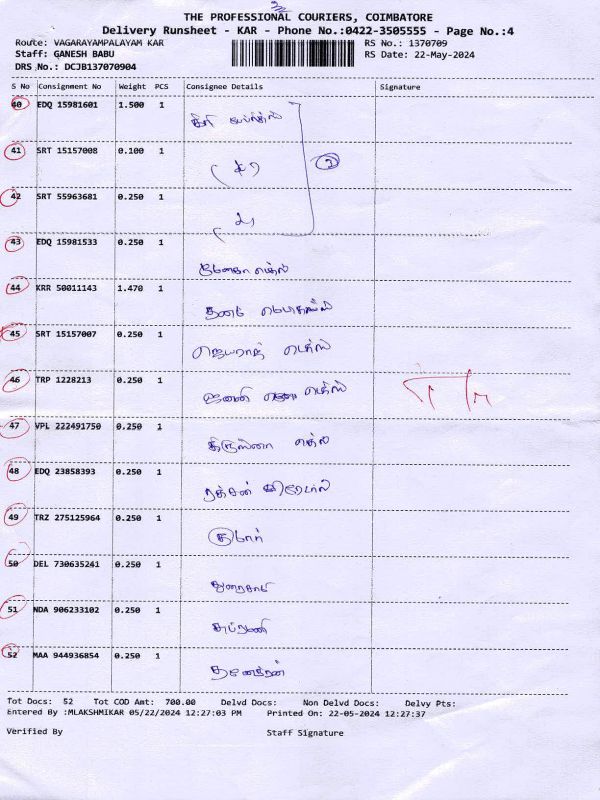 THE PROFESSIONAL COURIERS, COIMBATORE
Delivery Runsheet - KAR - Phone No.:0422-3505555 - Page No.:4
Route: VAGARAYAMPALAYAM KAR RS No.: 1370709
Staff: GANESH BABU RS Date: 22-May-2024
DRS No.: DCJB137070904
S No Consignment No Weight PCS Consignee Details Signature
40 EDQ 15981601 1.500 1
41 SRT 15157008 0.100 1
42 SRT 55963681 0.250 1
43 EDQ 15981533 0.250 1
44 KRR 50011143 1.470 1
45 SRT 15157007 0.250 1 ஜெயராஜ்
46 TRP 1228213 0.250 1
47 VPL 222491750 0.250 1
48 EDQ 23858393 0.250 1
49 TRZ 275125964 0.250 1
50 DEL 730635241 0.250 1 துரைசாமி
51 NDA 906233102 0.250 1 சுப்ரமணி
52 MAA 944936854 0.250 1
Tot Docs: 52 Tot COD Amt: 700.00 Delvd Docs: Non Delvd Docs: Delvy Pts:
Entered By :MLAKSHMIKAR 05/22/2024 12:27:03 PM Printed On: 22-05-2024 12:27:37
Verified By Staff Signature